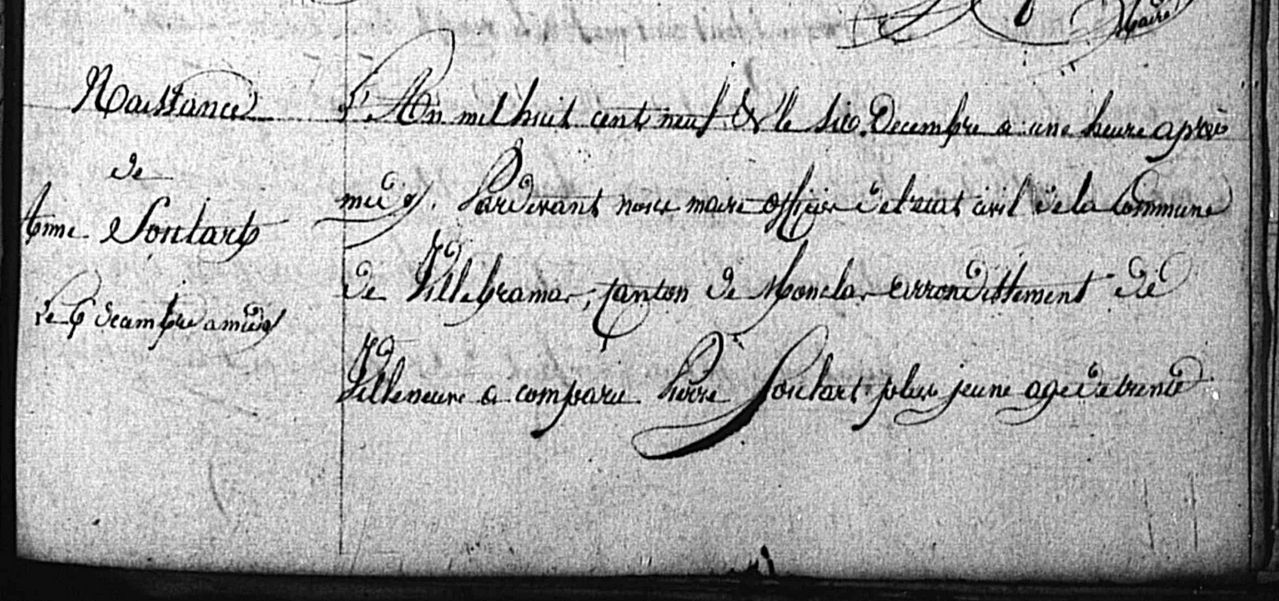 Maire
Naissance
de
Anne Soulart
Le 6 decembre a midy
L'An mil huit cent neuf & le six Decembre a une heure après
midy. Pardevant nous maire officier de letat civil de la Commune
de Villebramar, canton de Monclar arrondissement de
Villeneuve a comparu Pierre Soulart plus jeune age de trente